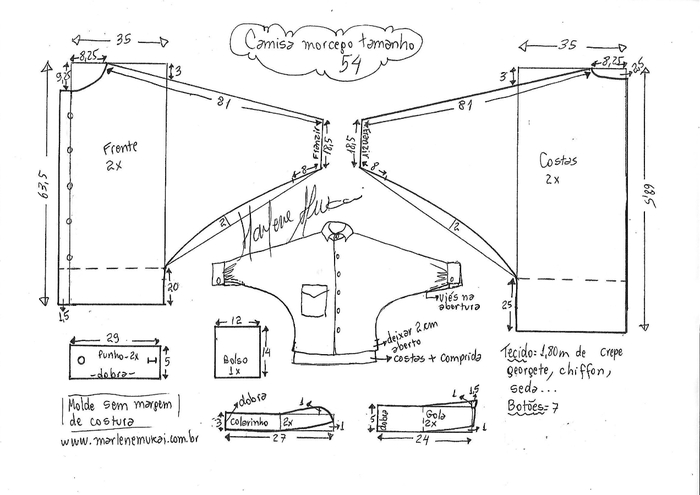 Camisa morcego tamanho
54
35
8,25
9,25
3
81
Frente
2x
63,5
Franzir
18,5
8
2
20
1,5
35
8,25
2,5
3
81
Franzir
18,5
Costas
2x
68,5
8
2
25
Marlene Mukai
29
Punho-2x
-dobra-
5
12
Bolso
1x
14
viés na
abertura
deixar 2cm
aberto
costas + comprida
Tecido: 1,80m de crepe
georgete, chiffon,
seda...
Botões= 7
Molde sem margem
de costura
www.marlenemukai.com.br
dobra
1
3
Colarinho
2x
1
27
1
1,5
5
dobra
Gola
2x
1
24